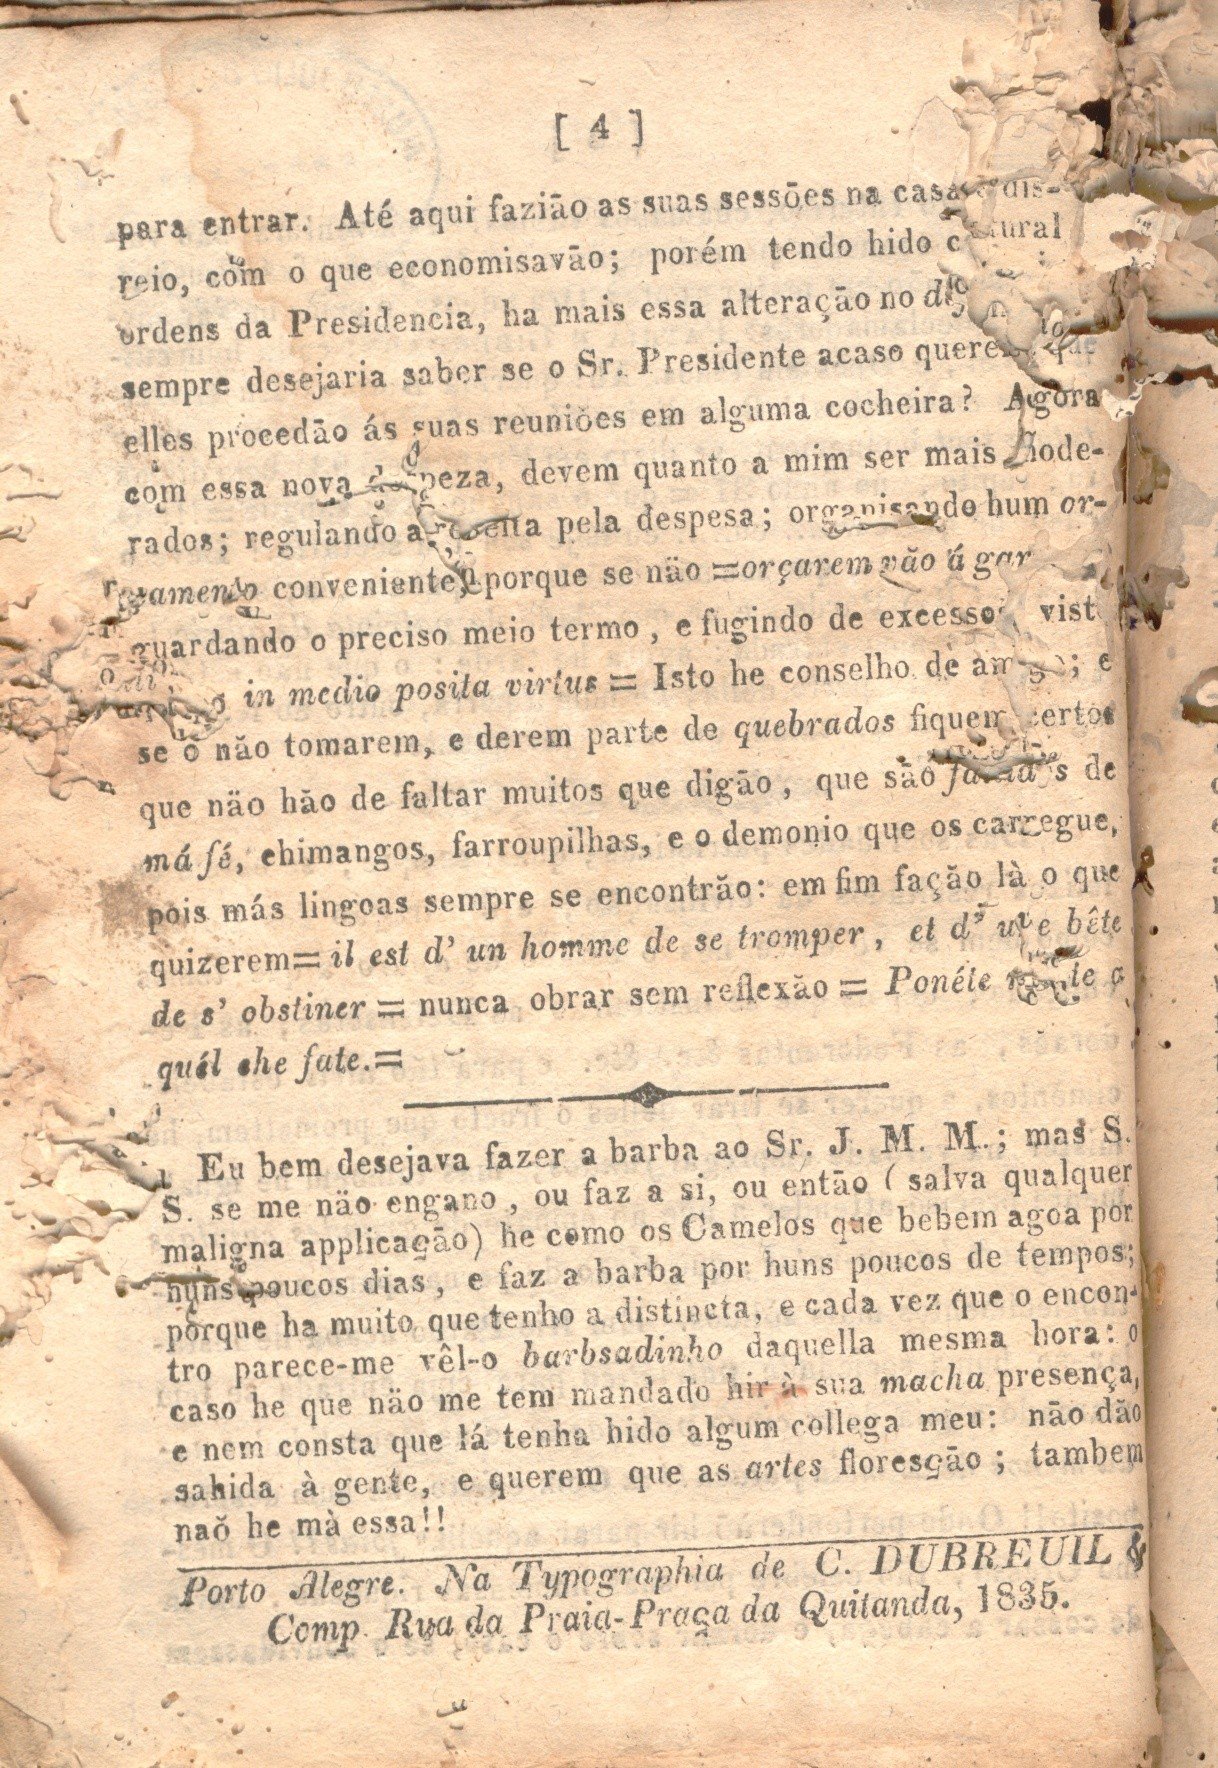 [ 4 ]
para entrar. Até aqui fazião as suas sessões na casa dis-
reio, com o que economisavão; porém tendo hido
ordens da Presidencia, ha mais essa alteração no
sempre desejaria saber se o Sr. Presidente acaso querer que
elles procedão ás suas reuniões em alguma cocheira? Agora
com essa nova despeza, devem quanto a mim ser mais mode-
rados; regulando a receita pela despesa; organisando hum or-
çamento conveniente, porque se não =orçarem vão á gar
guardando o preciso meio termo, e fugindo de excessos visto
in medio posita virtus = Isto he conselho de amigo; e
se o não tomarem, e derem parte de quebrados fiquem certos
que não hão de faltar muitos que digão, que são falidos de
má fé, chimangos, farroupilhas, e o demonio que os carregue,
pois más lingoas sempre se encontrão: em fim fação là o que
quizerem= il est d' un homme de se tromper, et d' une bête
de s' obstiner = nunca obrar sem reflexão = Ponéte mente a
quél che fate.=
Eu bem desejava fazer a barba ao Sr. J. M. M.; mas S.
S. se me não engano, ou faz a si, ou então ( salva qualquer
maligna applicação) he como os Camelos que bebem agoa por
huns poucos dias, e faz a barba por huns poucos de tempos;
porque ha muito que tenho a distincta, e cada vez que o encon-
tro parece-me vêl-o barbsadinho daquella mesma hora: o
caso he que não me tem mandado hir à sua macha presença,
e nem consta que lá tenha hido algum collega meu: não dão
sahida à gente, e querem que as artes floresção; tambem
naõ he mà essa!!
Porto Alegre. Na Typographia de C. DUBREUIL &
Comp. Rua da Praia-Praça da Quitanda, 1835.